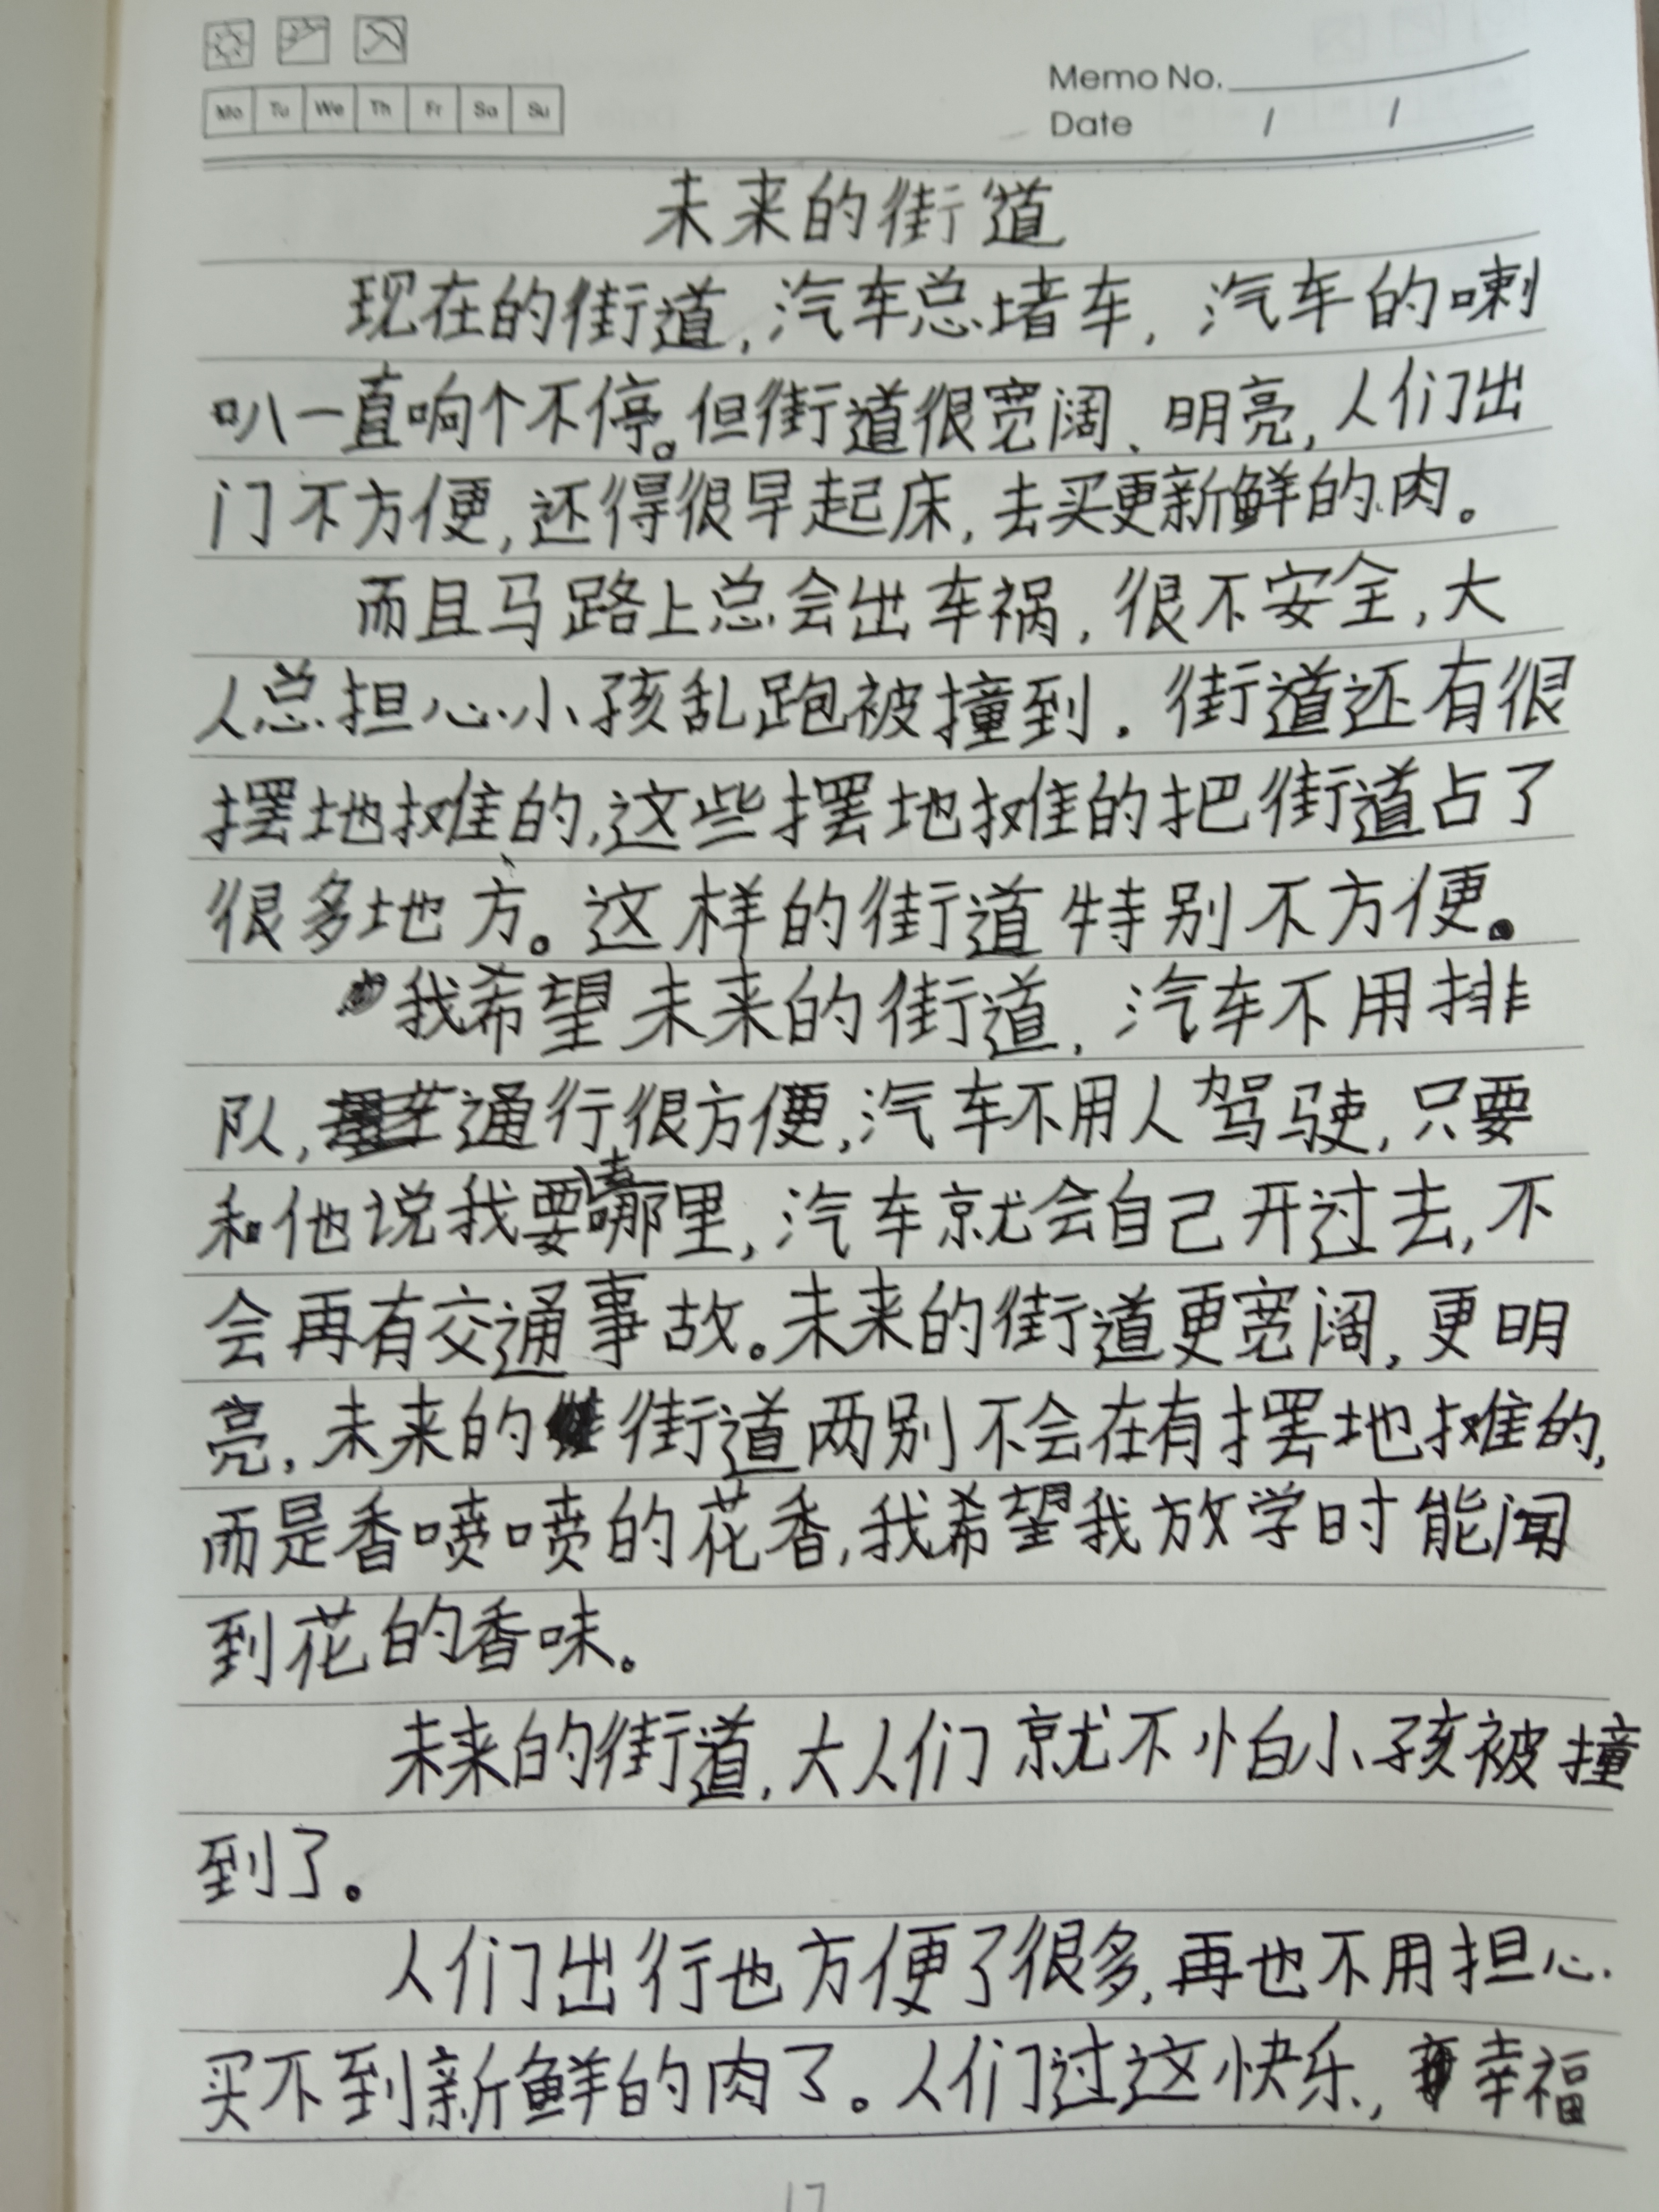 Mo Tu We Th Fr Sa Su
Memo No.
Date / /
未来的街道
现在的街道,汽车总堵车,汽车的喇
叭一直响个不停。但街道很宽阔、明亮,人们出
门不方便,还得很早起床,去买更新鲜的肉。
而且马路上总会出车祸,很不安全,大
人总担心小孩乱跑被撞到。街道还有很
摆地摊的,这些摆地摊的把街道占了
很多地方。这样的街道特别不方便。
我希望未来的街道,汽车不用排
队,通行很方便,汽车不用人驾驶,只要
和他说我要去哪里,汽车就会自己开过去,不
会再有交通事故。未来的街道更宽阔,更明
亮,未来的街道两别不会在有摆地摊的,
而是香喷喷的花香,我希望我放学时能闻
到花的香味。
未来的街道,大人们就不怕小孩被撞
到了。
人们出行也方便了很多,再也不用担心
买不到新鲜的肉了。人们过这快乐,幸福
17